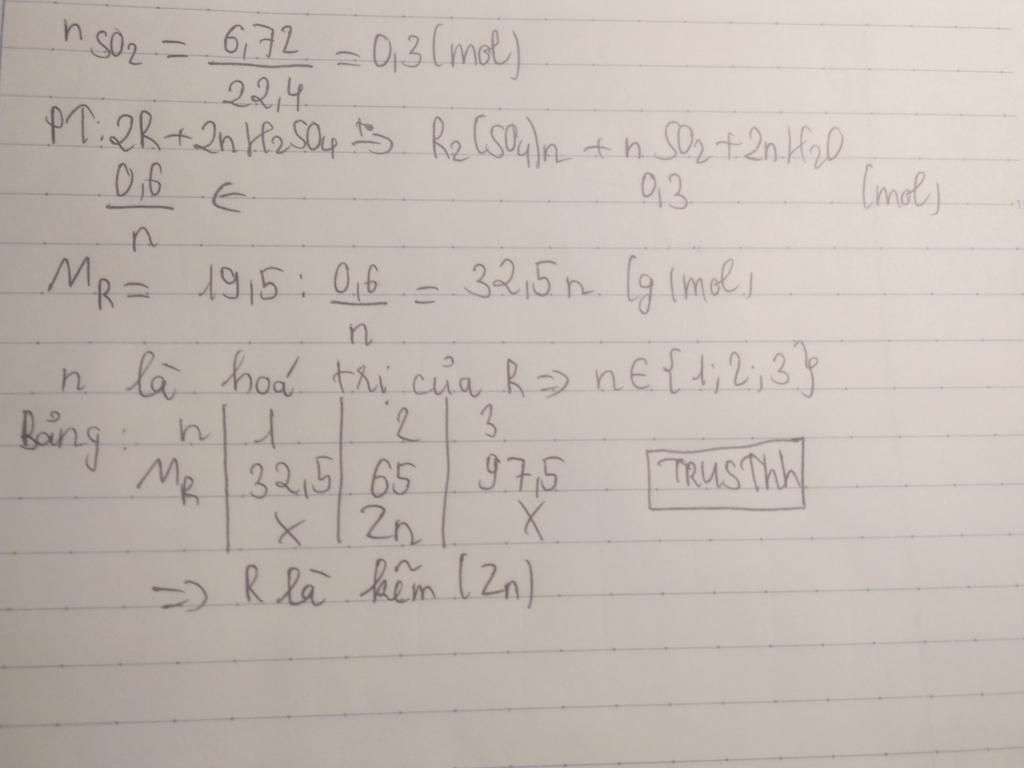 nSO2 = 6,72/22,4 = 0,3 (mol)
PT: 2R + 2nH2SO4 t°→ R2(SO4)n + nSO2 + 2nH2O
0,6/n ← 0,3 (mol)
MR = 19,5 : 0,6/n = 32,5n (g/mol)
n là hoá trị của R => n∈{1;2;3}
Bảng: n | 1 | 2 | 3
MR | 32,5 | 65 | 97,5
X | Zn | X
TRUSThh
=> R là kẽm (Zn)